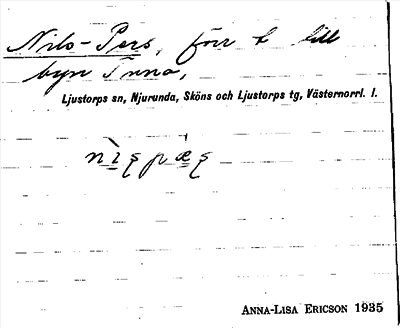 Nils-Pers, förr b till
byn Tunna,
Ljustorps sn, Njurunda, Sköns och Ljustorps tg, Västernorrl. l.
ANNA-LISA ERICSON 1935